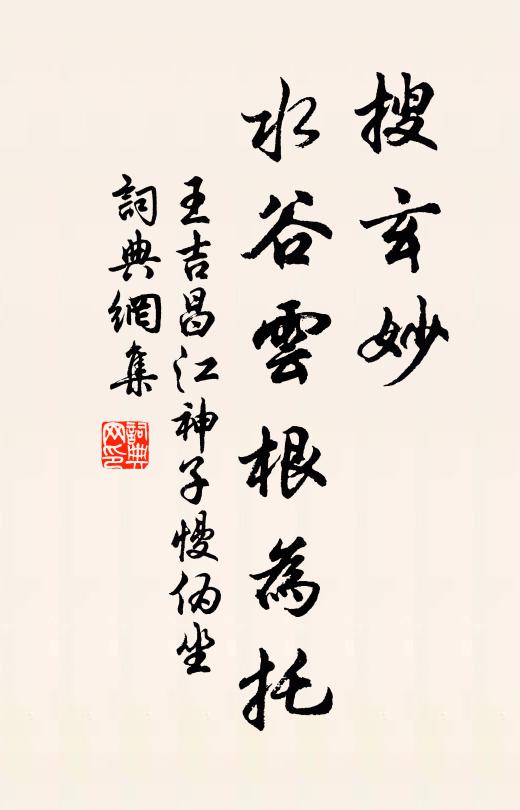 搜玄妙
水谷雲根為托
王吉昌江神子慢偽坐
詞典網集
詞典网印